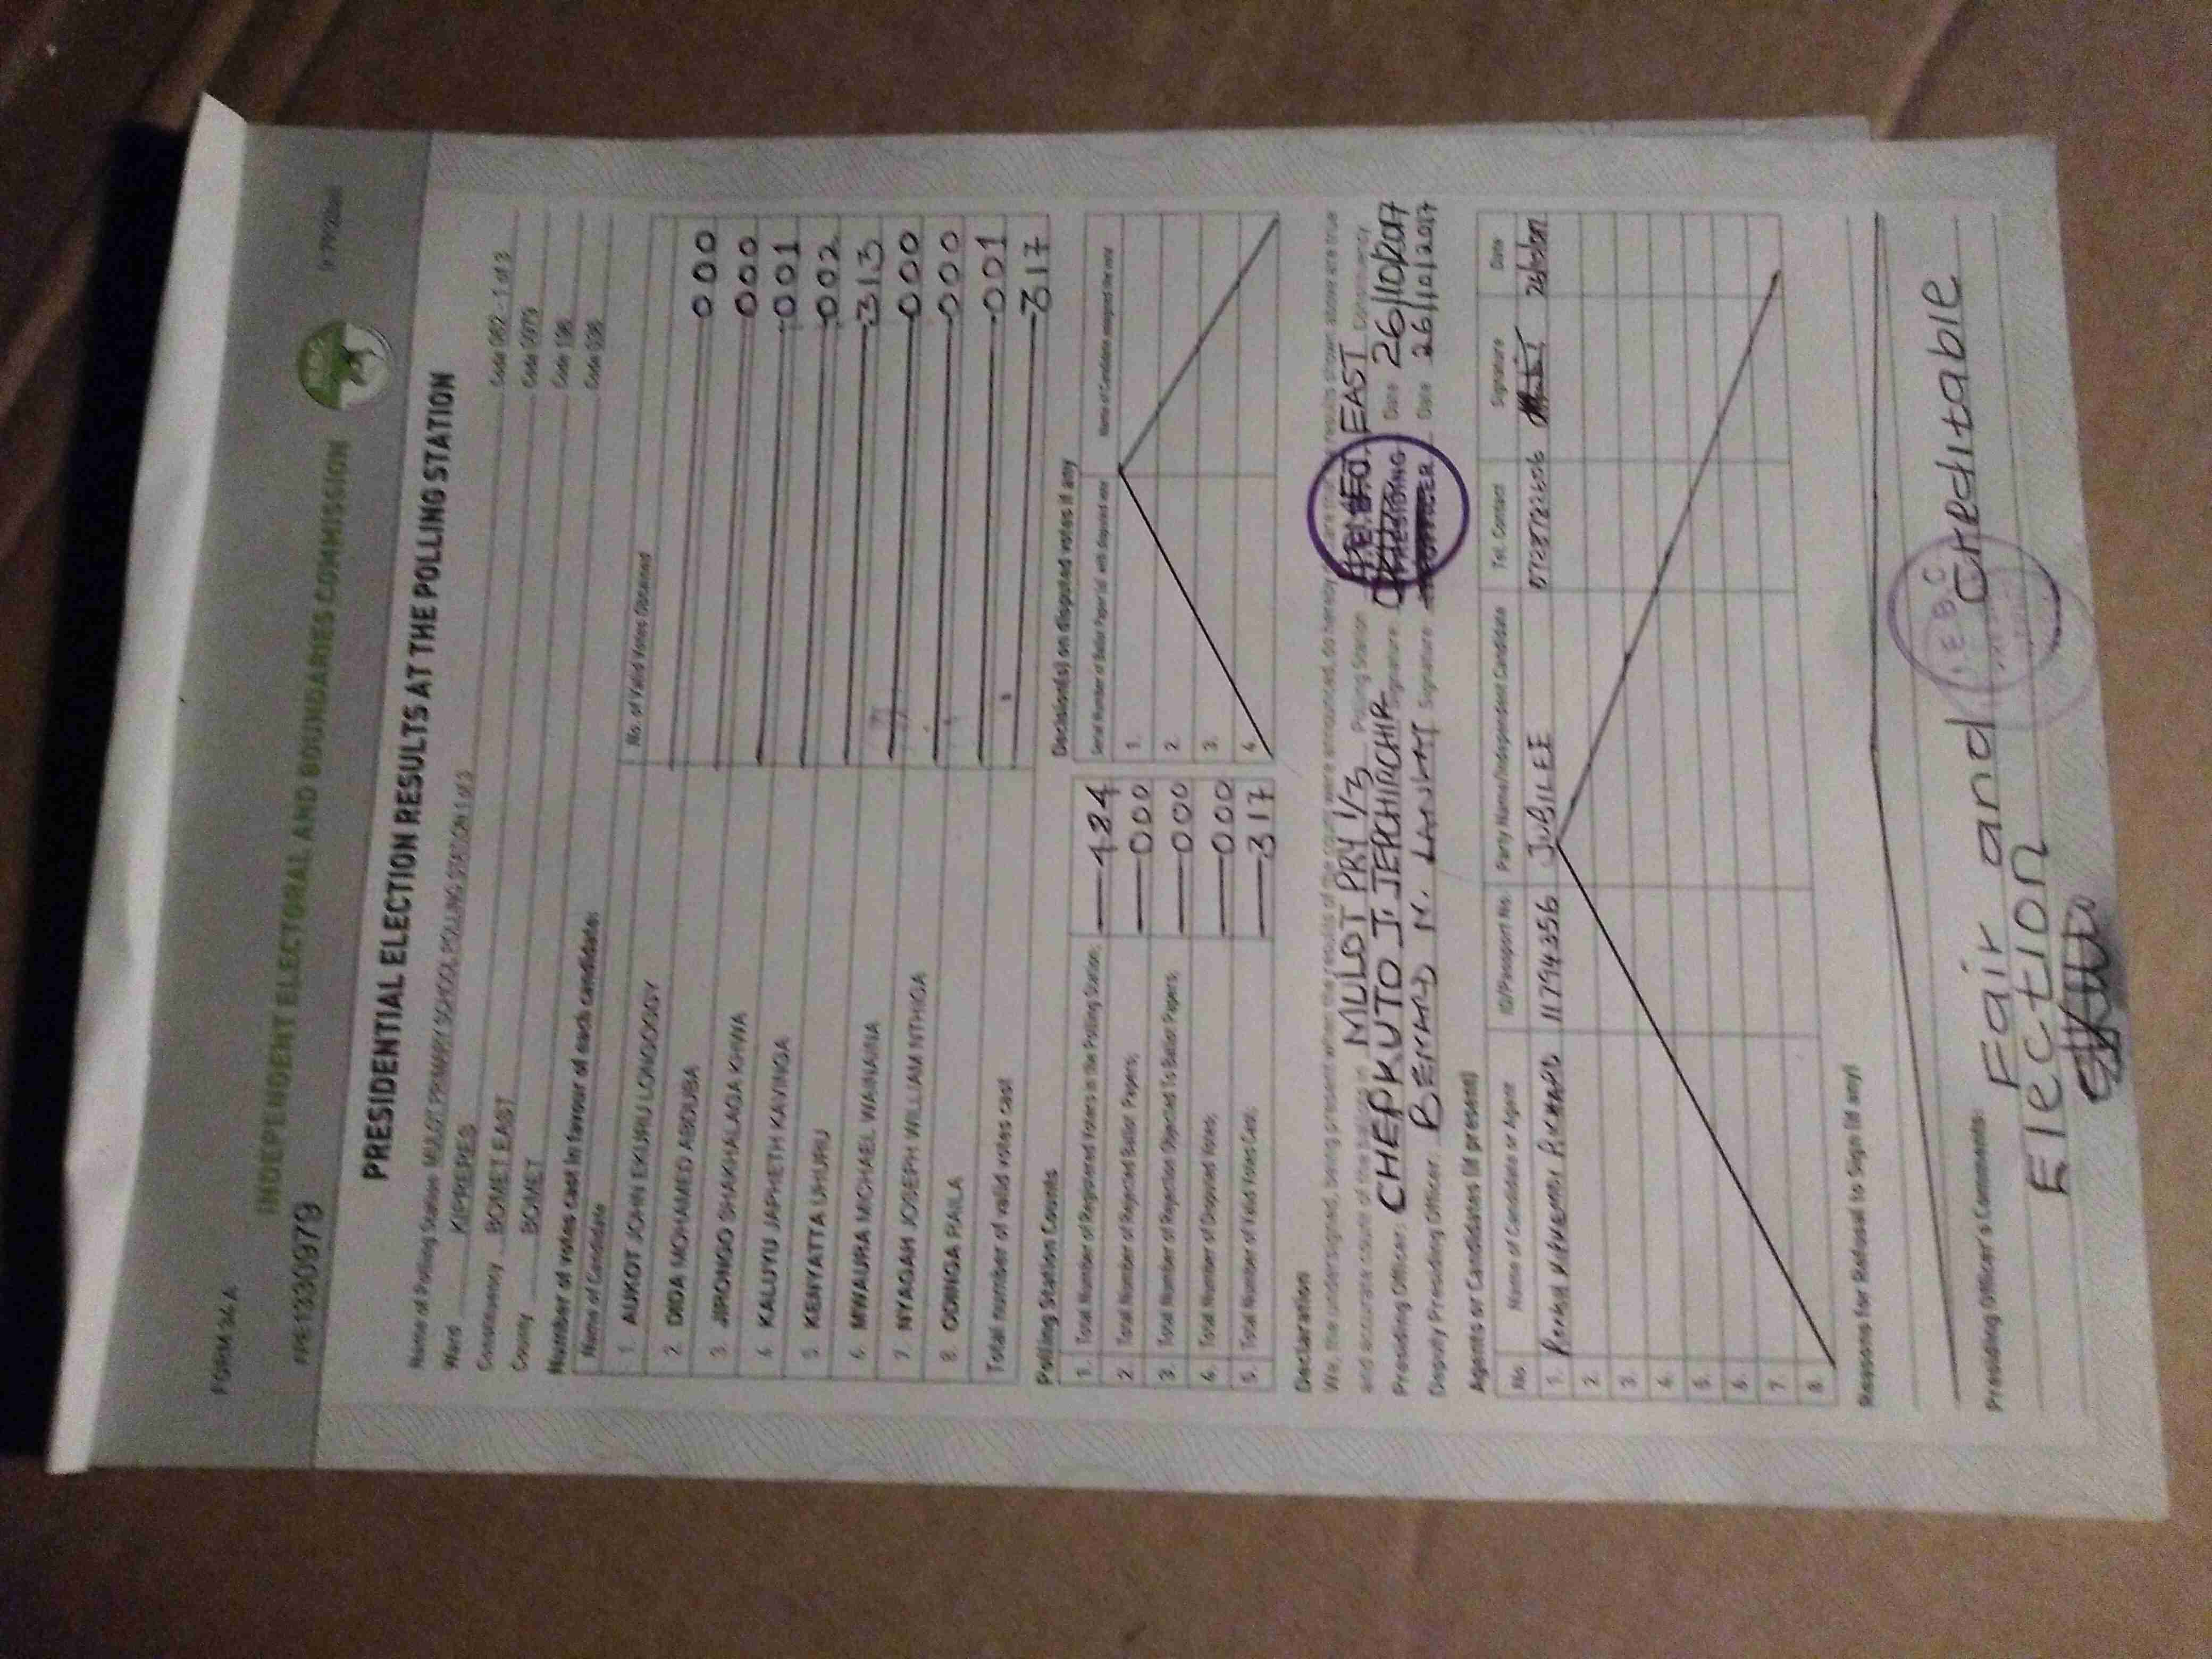 FORM 34 A
INDEPENDENT ELECTORAL AND BOUNDARIES COMMISSION
PRE1330979
PRESIDENTIAL ELECTION RESULTS AT THE POLLING STATION
Name of Polling Station MULOT PRIMARY SCHOOL POLLING STATION 1 of 3 Code 062 - 1 of 3
Ward KIPRERES Code 0979
Constituency BOMET EAST Code 196
County BOMET Code 036
Number of votes cast in favour of each candidate:
Name of Candidate No. of Valid Votes Obtained
1. AUKOT JOHN EKURU LONGOGGY 000
2. DIDA MOHAMED ABDUBA 000
3. JIRONGO SHAKHALAGA KHWA 001
4. KALUYU JAPHETH KAVINGA 002
5. KENYATTA UHURU 313
6. MWAURA MICHAEL WAINAINA 000
7. NYAGAH JOSEPH WILLIAM NTHIGA 000
8. ODINGA RAILA 001
Total number of valid votes cast 317
Polling Station Counts
1. Total Number of Registered Voters in the Polling Station; 484
2. Total Number of Rejected Ballot Papers; 000
3. Total Number of Rejection Objected To Ballot Papers; 000
4. Total Number of Disputed Votes; 000
5. Total Number of Valid Votes Cast; 317
Decision(s) on disputed votes if any
Serial Number of Ballot Paper(s) with disputed vote Name of Candidate assigned the vote
1.
2.
3.
4.
Declaration
We, the undersigned, being present when the results of the count were announced, do hereby declare that the results shown above are true
and accurate count of the ballots in MULOT PRY 1/3 Polling Station BOMET EAST Constituency
Presiding Officer: CHEPKUTO J. JEPCHIRCHIR Signature: Date 26/10/2017
Deputy Presiding Officer: BERNARD N. LANGAT Signature: Date 26/10/2017
PRESIDING
OFFICER
Agents or Candidates (if present)
No. Name of Candidate or Agent ID/Passport No. Party Name/Independent Candidate Tel. Contact Signature Date
1. RICHARD 11794356 JUBILEE 26/10/2017
2.
3.
4.
5.
6.
7.
8.
Reasons for Refusal to Sign (if any)
Presiding Officer's Comments:
Fair and creditable
Election
IEBC